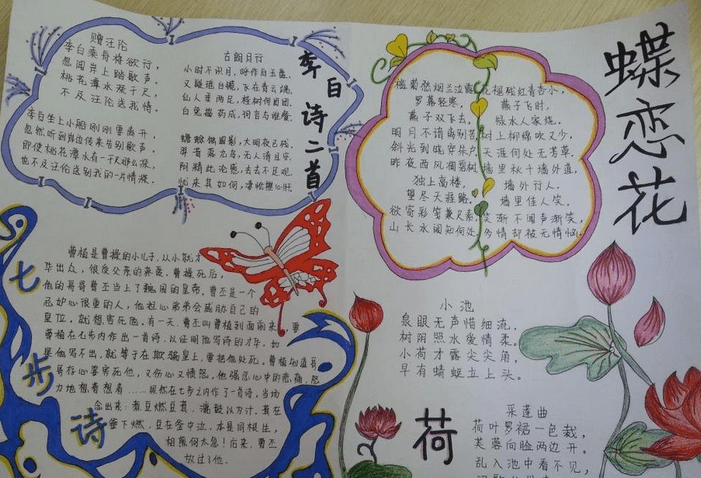 李白诗二首
赠汪伦
李白乘舟将欲行，
忽闻岸上踏歌声。
桃花潭水深千尺，
不及汪伦送我情。
李白坐上小船刚刚要离开，
忽然听到岸边传来告别歌声。
即使桃花潭水有一千尺那么深，
也不及汪伦送别我的一片情深。
古朗月行
小时不识月，呼作白玉盘。
又疑瑶台镜，飞在青云端。
仙人垂两足，桂树何团团。
白兔捣药成，问言与谁餐。
蟾蜍蚀圆影，大明夜已残。
羿昔落九乌，天人清且安。
阴精此沦惑，去去不足观。
忧来其如何，凄怆摧心肝
蝶恋花
槛菊愁烟兰泣露
罗幕轻寒，
燕子双飞去。
明月不谙离别苦
斜光到晓穿朱户
昨夜西风凋碧树
独上高楼，
望尽天涯路。
欲寄彩笺兼尺素
山长水阔知何处
花褪残红青杏小，
燕子飞时，
绿水人家绕。
枝上柳绵吹又少，
天涯何处无芳草。
墙里秋千墙外道，
墙外行人，
墙里佳人笑。
笑渐不闻声渐笑，
多情却被无情恼。
七步诗
曹植是曹操的小儿子，从小就才
华出众，很受父亲的疼爱。曹操死后，
他的哥哥曹丕当上了魏国的皇帝。曹丕是一个
忌妒心很重的人，他担心弟弟会威胁自己的
皇位，就想害死他。有一天，曹丕叫曹植到面前来，要
曹植在七步内作出一首诗，以证明他写诗的才华。如
是他写不出，就等于在欺骗皇上，要把他处死。曹植知道哥
哥存心要害死他，又伤心又愤怒。他强忍心中的悲痛，努
力地想着想着……果然在七步之内作了一首诗，当场
念出来：煮豆燃豆萁，漉豉以为汁。萁在
釜下燃，豆在釜中泣。本是同根生，
相煎何太急！后来，曹丕
放过了他。
小池
泉眼无声惜细流，
树阴照水爱晴柔。
小荷才露尖尖角，
早有蜻蜓立上头。
荷
采莲曲
荷叶罗裙一色裁，
芙蓉向脸两边开。
乱入池中看不见，